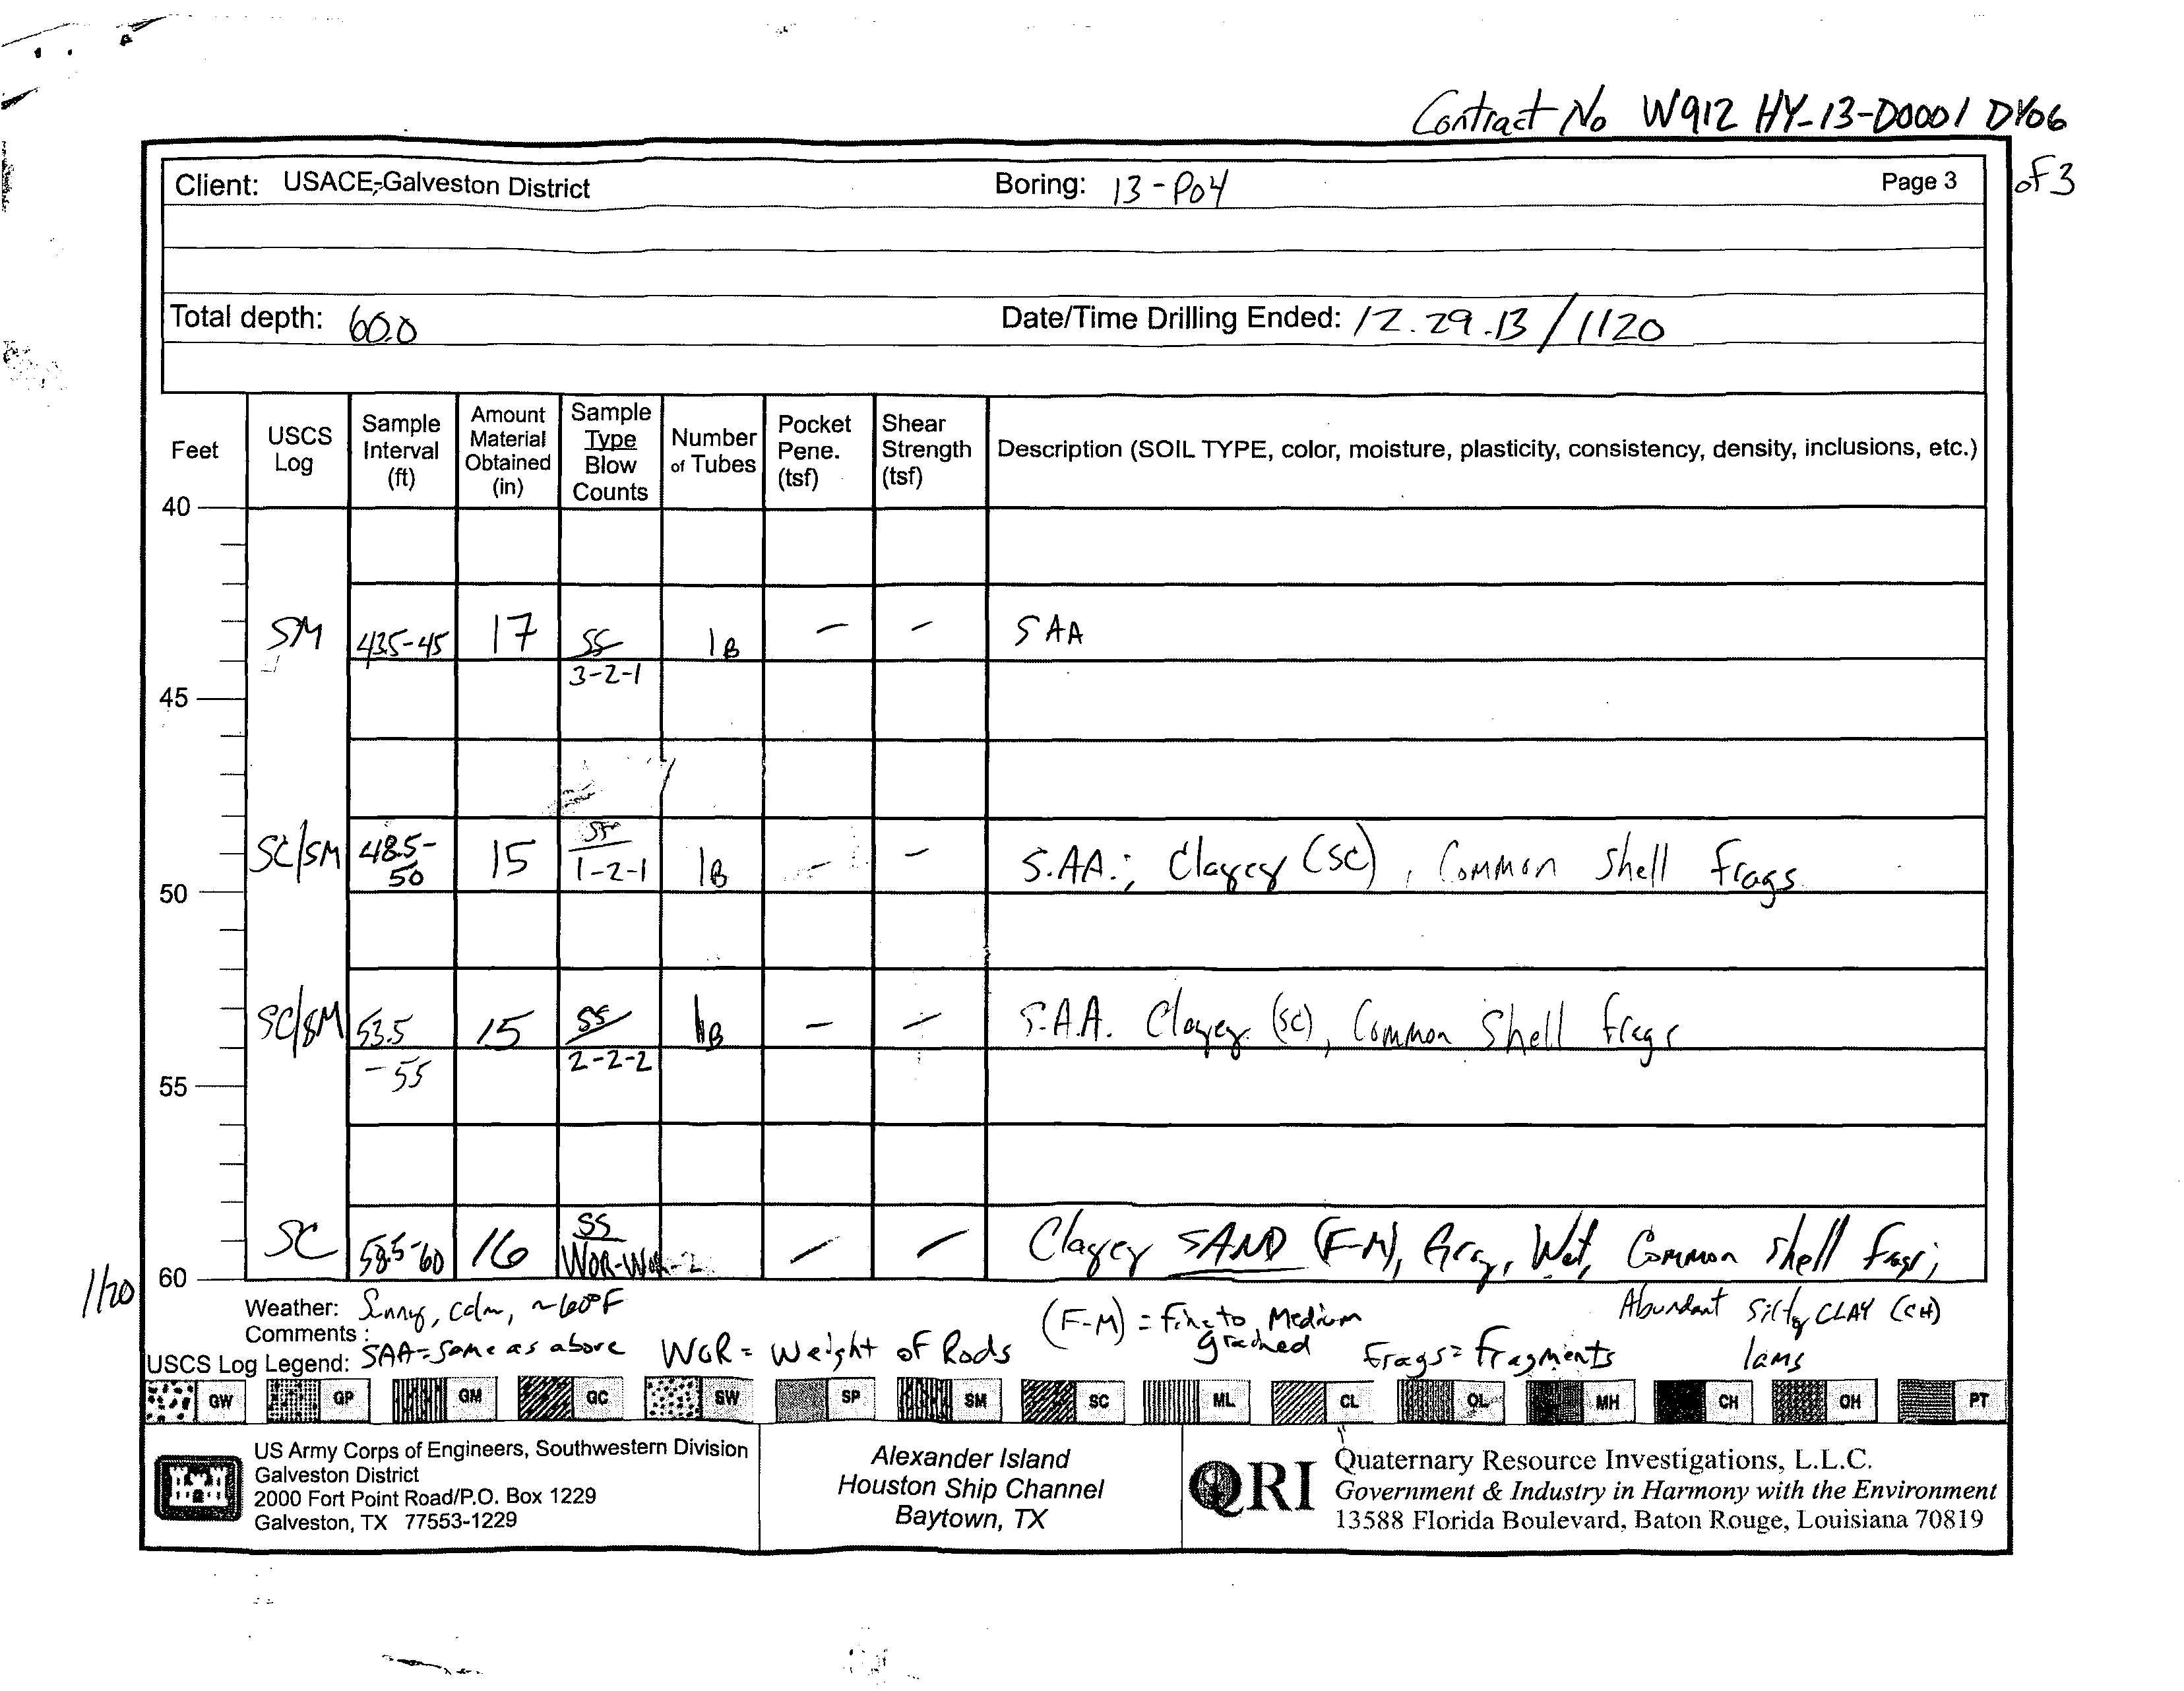 Contract No W912 HY-13-D0001 DY06
Client: USACE-Galveston District Boring: 13-P04 Page 3 of 3
Total depth: 60.0 Date/Time Drilling Ended: 12.29.13 / 1120
Feet
USCS Log
Sample Interval (ft)
Amount Material Obtained (in)
Sample Type Blow Counts
Number of Tubes
Pocket Pene. (tsf)
Shear Strength (tsf)
Description (SOIL TYPE, color, moisture, plasticity, consistency, density, inclusions, etc.)
40
SM 43.5-45 17 SS 1B – – SAA
3-2-1
45
SC/SM 48.5-50 15 SS 1-2-1 1B – – S.AA.; Clayey (SC), Common Shell frags
50
SC/SM 53.5-55 15 SS 1B – – S.A.A. Clayey (SC), Common Shell frags
2-2-2
55
SC 58.5-60 16 SS WOR-WOR-2 – – Clayey SAND (F-M), Gray, Wet, Common shell frags;
1120 60
Abundant Silty CLAY (CH)
lams
Weather: Sunny, calm, ~60°F
(F-M) = Fine to Medium
grained
Comments :
SAA=Same as above WOR = Weight of Rods Frags = fragments
USCS Log Legend:
GW GP GM GC SW SP SM SC ML CL OL MH CH OH PT
US Army Corps of Engineers, Southwestern Division
Galveston District
2000 Fort Point Road/P.O. Box 1229
Galveston, TX 77553-1229
Alexander Island
Houston Ship Channel
Baytown, TX
QRI
Quaternary Resource Investigations, L.L.C.
Government & Industry in Harmony with the Environment
13588 Florida Boulevard, Baton Rouge, Louisiana 70819